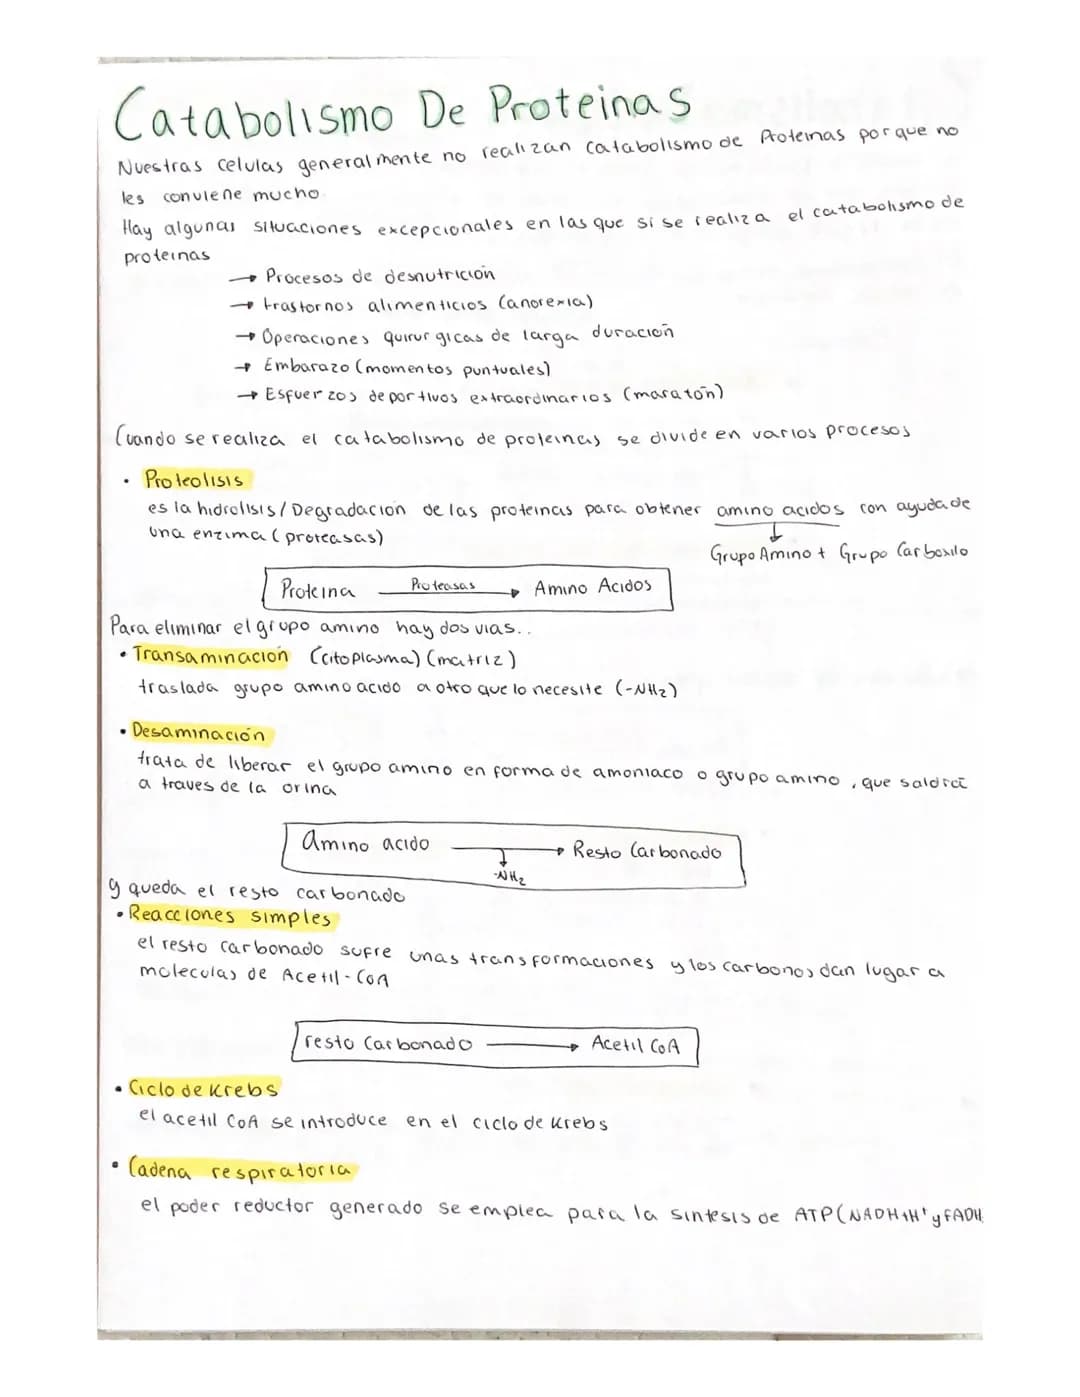 Catabolismo De Proteinas
Nuestras celulas generalmente no realizan catabolismo de Proteinas porque no
les conviene mucho.
Hay algunas situaciones excepcionales en las que si se realiza el catabolismo de
proteinas
→ Procesos de desnutrición
→ trastornos alimenticios (anorexia)
→ Operaciones quirurgicas de larga duración
→ Embarazo (momentos puntuales)
→ Esfuerzos deportivos extraordinarios (maratón)
Cuando se realiza el catabolismo de proteinas se divide en varios procesos
• Proteolisis
es la hidrolisis/Degradacion de las proteinas para obtener amino acidos con ayuda de
una enzima (proteasas)
↓
Grupo Amino + Grupo Carboxilo
Proteina Proteasas → Amino Acidos
Para eliminar el grupo amino hay dos vias..
• Transaminacion (citoplasma) (matriz)
traslada grupo amino acido a otro que lo necesite (-NH₂)
• Desaminación
trata de liberar el grupo amino en forma de amoniaco o grupo amino, que saldrá
a traves de la orina
amino acido → Resto Carbonado
-NH₂
y queda el resto carbonado
• Reacciones simples
el resto carbonado sufre unas transformaciones y los carbonos dan lugar a
moleculas de Acetil-CoA
resto Carbonado → Acetil CoA
• Ciclo de Krebs
el acetil CoA se introduce en el ciclo de Krebs
• Cadena respiratoria
el poder reductor generado se emplea para la sintesis de ATP (NADH+H⁺ y FADH